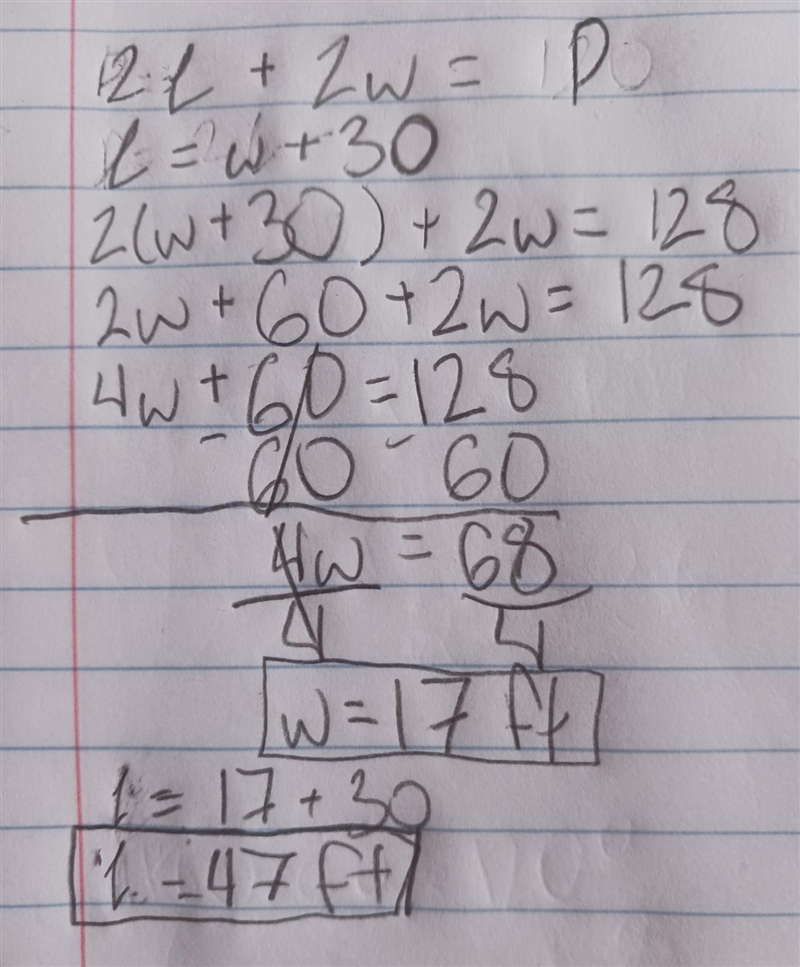 2l + 2w = P
l = w + 30
2(w + 30) + 2w = 128
2w + 60 + 2w = 128
4w + 60 = 128
- 60 - 60
4w = 68
4 4
w = 17 ft
l = 17 + 30
l = 47 ft